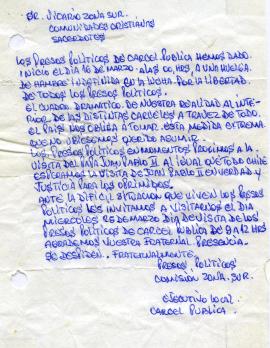 SR. VICARIO ZONA SUR.
COMUNIDADES CRISTIANAS
SACERDOTES
LOS PRESOS POLITICOS DE CARCEL PUBLICA HEMOS DADO
INICIO EL DIA 16 DE MARZO. A LAS 00 HRS, A UNA HUELGA
DE HAMBRE INDEFINIDA EN LA LUCHA POR LA LIBERTAD
DE TODOS LOS PRESOS POLITICOS.
EL CUADRO DRAMATICO. DE NUESTRA REALIDAD AL INTE-
RIOR DE LAS DISTINTAS CARCELES A TRAVEZ DE TODO.
EL PAIS NOS OBLIGA A TOMAR ESTA MEDIDA EXTREMA
QUE NO QUEDO ASUMIR.
LOS PRESOS POLITICOS EN MOMENTOS PROXIMOS A LA
VISITA DEL PAPA JUAN PABLO II AL IGUAL QUE TODO CHILE
ESPERAMOS LA VISITA DE JUAN PABLO II EN VERDAD Y
JUSTICIA PARA LOS OPRIMIDOS.
ANTE LA DIFICIL SITUACION QUE VIVEN LOS PRESOS
POLITICOS LES INVITAMOS A VISITARNOS EL DIA
MIERCOLES 25 DE MARZO DIA DE VISITA DE LOS
PRESOS POLITICOS DE CARCEL PUBLICA DE 9 A 12 HRS
AGRADEMOS VUESTRA FRATERNAL PRESENCIA.
SE DESPIDEN. FRATERNALMENTE.
PRESOS POLITICOS
COMISION ZONA. SUR.
EJECUTIVO LOCAL.
CARCEL PUBLICA.